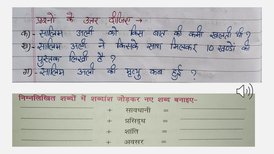 प्रश्नों के उत्तर दीजिए →
क)- सालिम अली को किस बात की कमी खलती थी ?
ख)- सालिम अली ने किसके साथ मिलकर 10 खण्डों की
पुस्तक लिखी है ?
ग)- सालिम अली की मृत्यु कब हुई ?
निम्नलिखित शब्दों में शब्दांश जोड़कर नए शब्द बनाइए-
+ सावधानी =
+ प्रसिद्ध =
+ शांति =
+ अवसर =